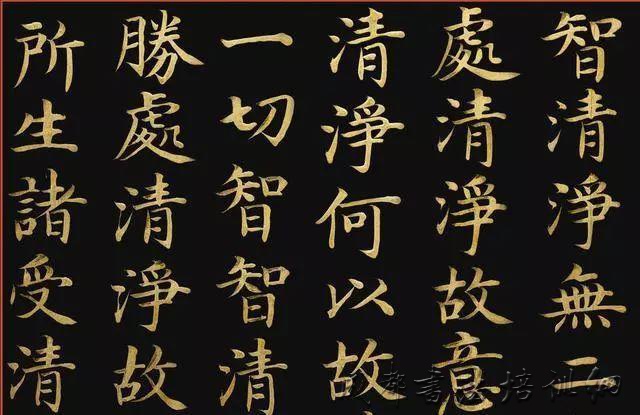 智清淨無二
處清淨故意
清淨何以故
一切智智清
勝處清淨故
所生諸受清
书法培训网